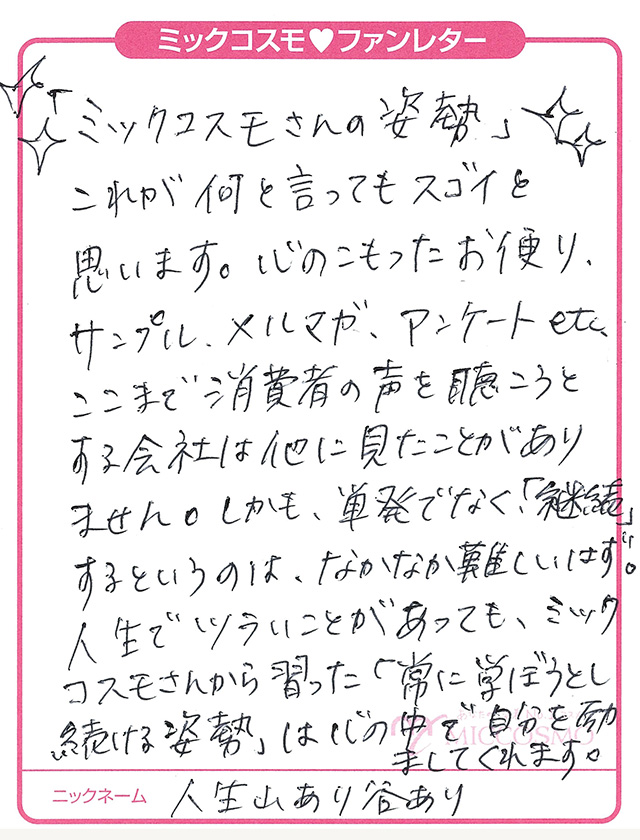 ミックコスモ♥ファンレター
「ミックコスモさんの姿勢」
これが何と言ってもスゴイと
思います。心のこもったお便り、
サンプル、メルマガ、アンケートetc、
ここまで消費者の声を聴こうと
する会社は他に見たことがあり
ません。しかも、単発でなく、「継続」
するというのは、なかなか難しいはず。
人生でツラいことがあっても、ミック
コスモさんから習った「常に学ぼうとし
続ける姿勢」は心の中で自分を励
ましてくれます。
MICCOSMO
ニックネーム 人生山あり谷あり